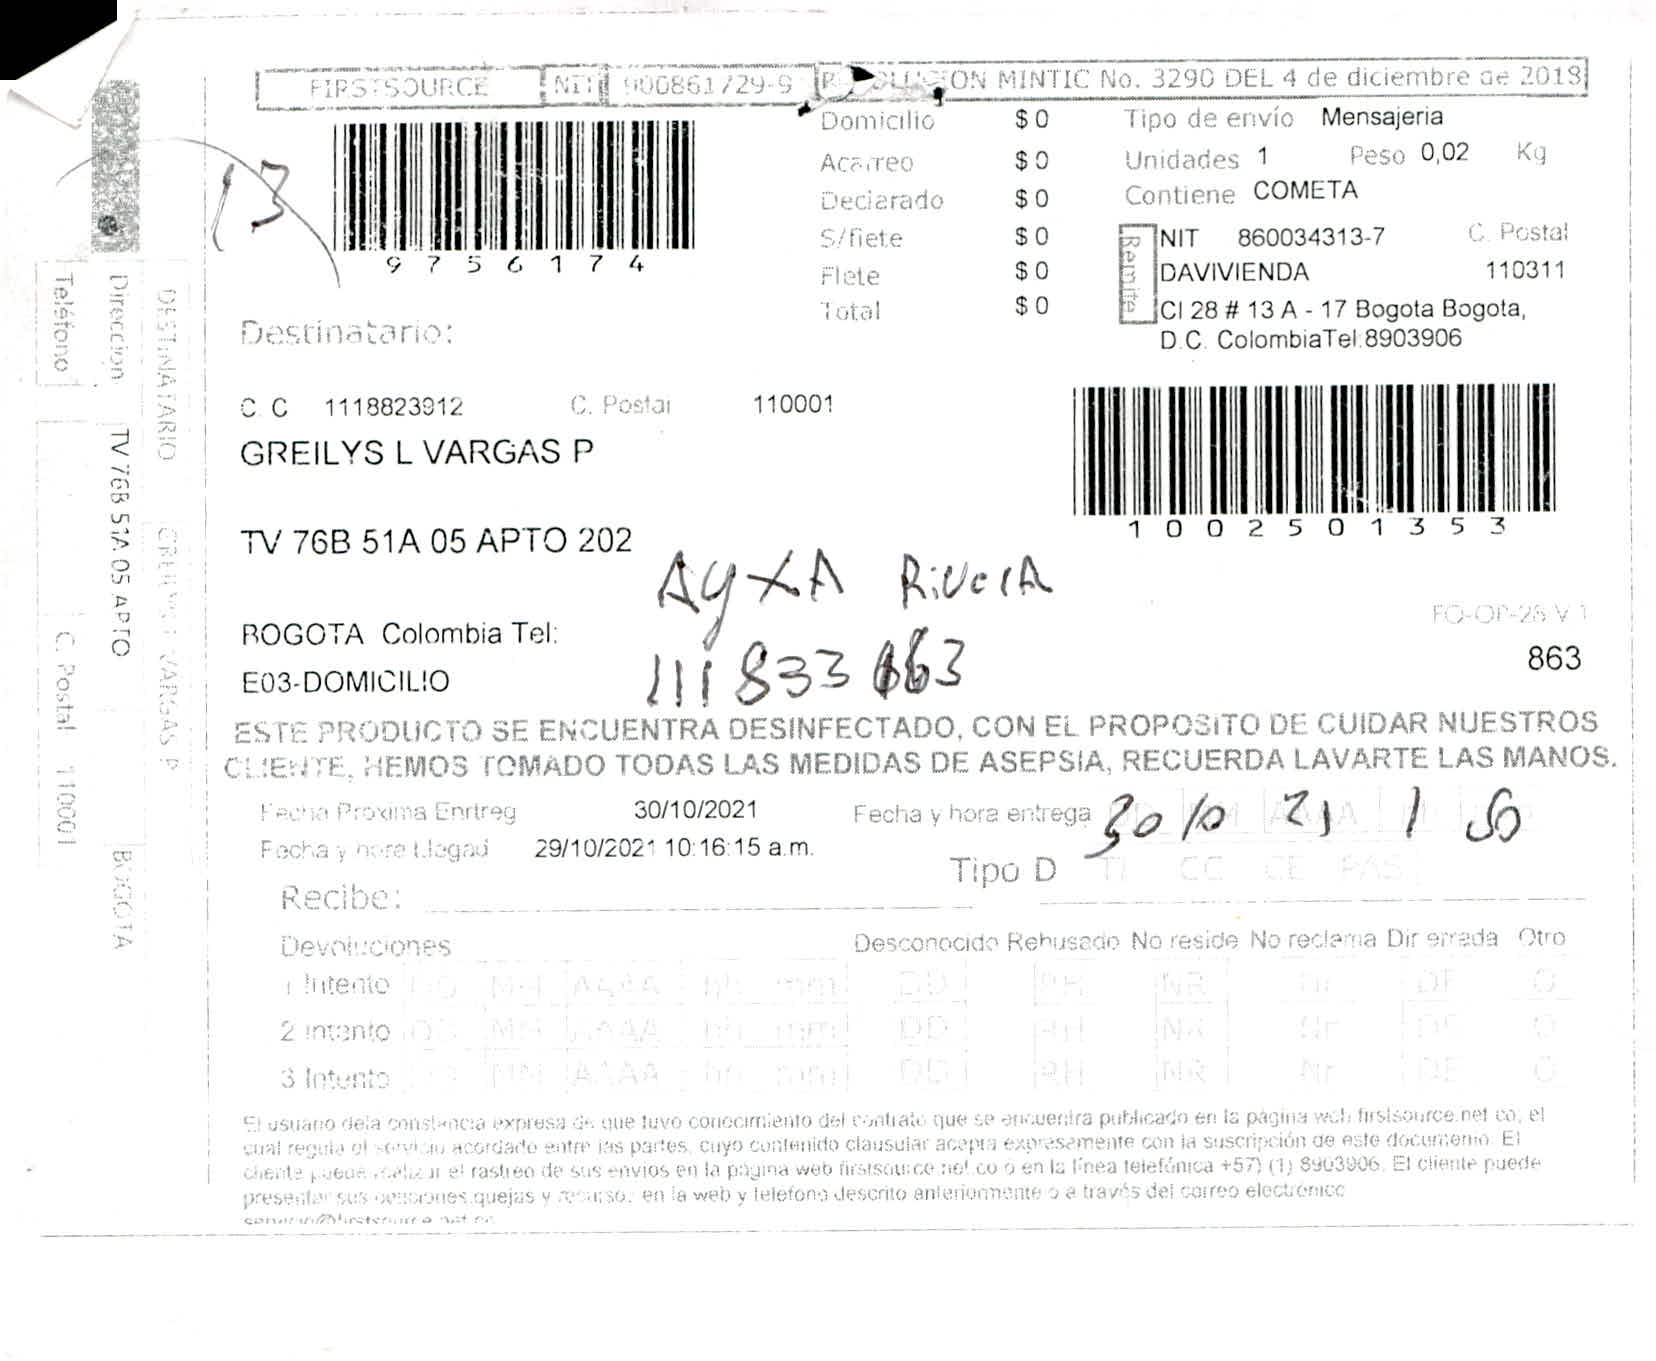 FIRSTSOURCE NIT 900861729-9 RESOLUCION MINTIC No. 3290 DEL 4 de diciembre de 2018
13
9756174
Domicilio $ 0
Acarreo $ 0
Declarado $ 0
S/flete $ 0
Flete $ 0
Total $ 0
Tipo de envío Mensajeria
Unidades 1 Peso 0,02 Kg
Contiene COMETA
Remite
NIT 860034313-7 C. Postal
DAVIVIENDA 110311
Cl 28 # 13 A - 17 Bogota Bogota,
D.C. ColombiaTel:8903906
Destinatario:
C. C 1118823912 C. Postal 110001
GREILYS L VARGAS P
1002501353
TV 76B 51A 05 APTO 202
Ayxa Rivera
BOGOTA Colombia Tel:
FO-OP-26 V 1
863
E03-DOMICILIO
111833 663
ESTE PRODUCTO SE ENCUENTRA DESINFECTADO, CON EL PROPOSITO DE CUIDAR NUESTROS
CLIENTE, HEMOS TOMADO TODAS LAS MEDIDAS DE ASEPSIA, RECUERDA LAVARTE LAS MANOS.
Fecha Proxima Enrtreg 30/10/2021 Fecha y hora entrega 30 10 21 1 50
Fecha y hora Llegad 29/10/2021 10:16:15 a.m.
Tipo D TI CC CE PAS
Recibe:
Devoluciones Desconocido Rehusado No reside No reclama Dir errada Otro
1 Intento DD MM AAAA hh mm DD RH NR Nr DE O
2 Intento DD MM AAAA hh mm DD RH NR Nr DE O
3 Intento DD MM AAAA hh mm DD RH NR Nr DE O
El usuario deja constancia expresa de que tuvo conocimiento del contrato que se encuentra publicado en la página web firstsource.net.co, el
cual regula el servicio acordado entre las partes, cuyo contenido clausular acepta expresamente con la suscripción de este documento. El
cliente puede realizar el rastreo de sus envios en la página web firstsource.net.co o en la línea telefónica +57) (1) 8903906. El cliente puede
presentar sus peticiones,quejas y recursos en la web y telefono descrito anteriormente o a través del correo electrónico
servicio@firstsource.net.co
DESTINATARIO GREILYS L VARGAS P
Direccion TV 76B 51A 05 APTO BOGOTA
Teléfono C. Postal 110001